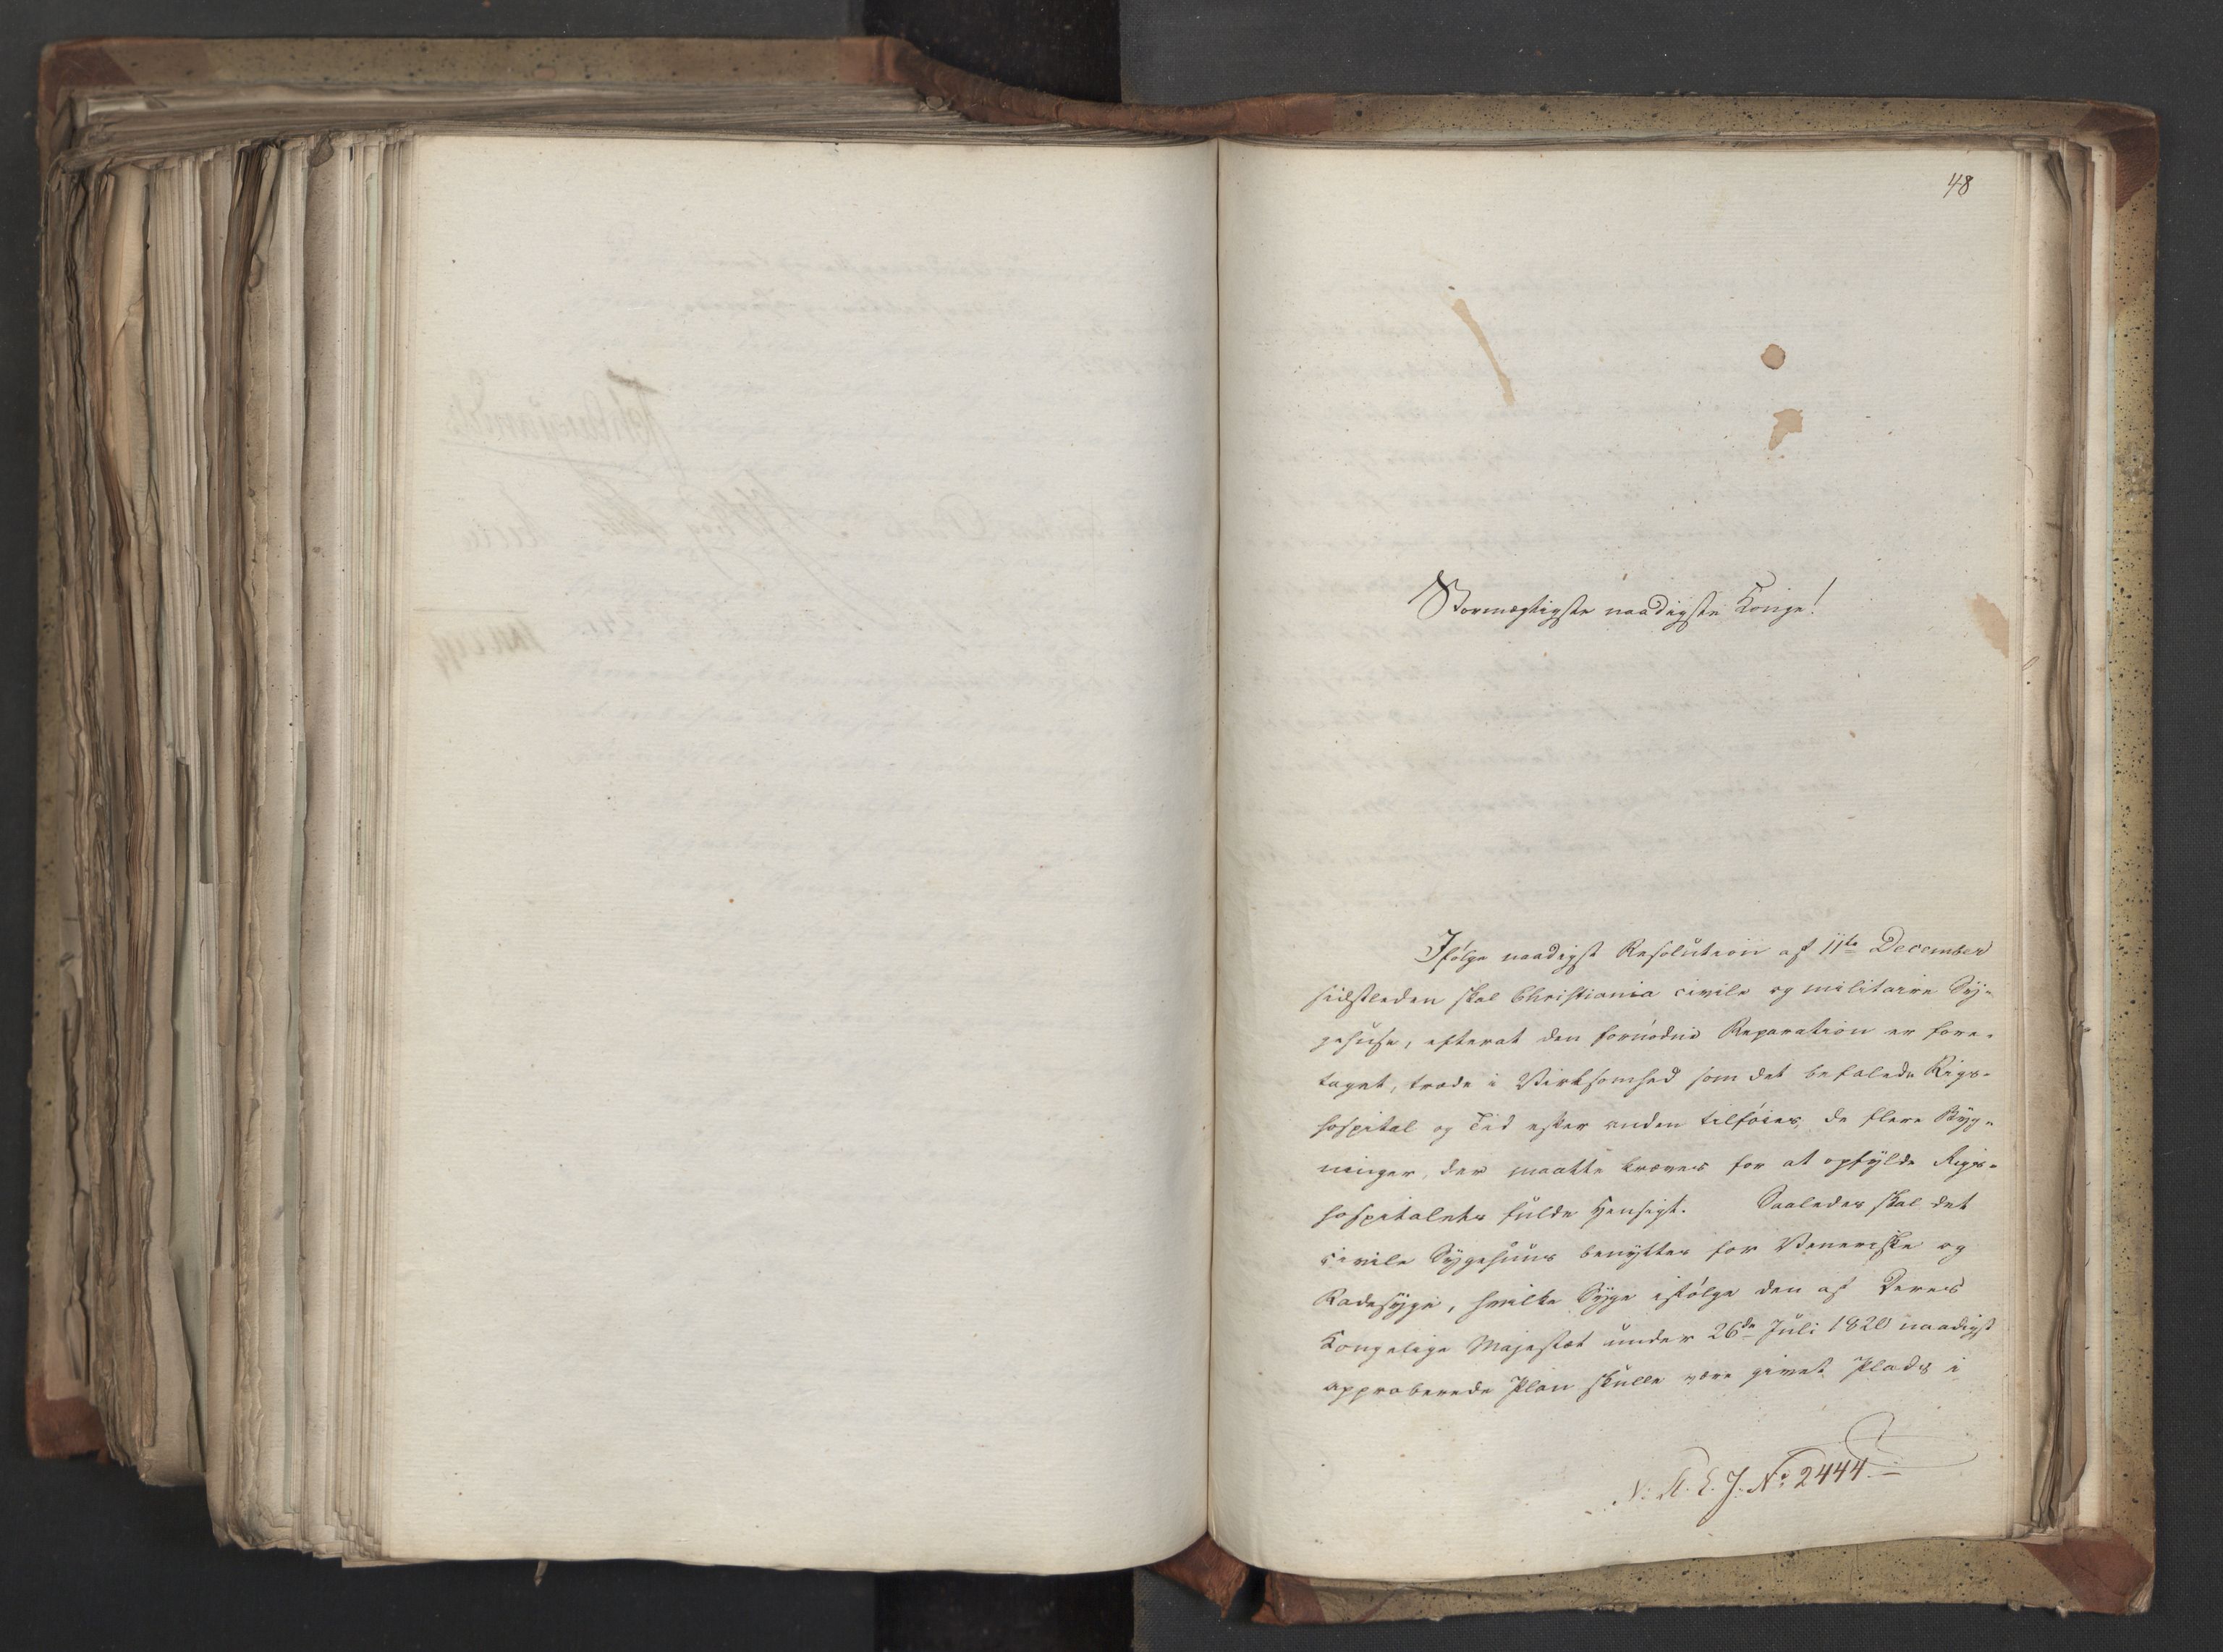 48
Stormægtigste naadigste Konge!
Ifølge naadigst Resolution af 11te December
sidstleden skal Christiania civile og militaire Sy-
gehuse, efterat den fornødne Reparation er fore-
taget, træde i Virksomhed som det befalede Rigs-
hospital og Tid efter anden tilføies de flere Byg-
ninger, der maatte kræves for at opfylde Rigs-
hospitalets fulde Hensigt. Saaledes skal det
civile Sygehuus benyttes for Veneriske og
Radesyge, hvilke Syge ifølge den af Deres
Kongelige Majestæt under 26de Juli 1820 naadigst
approberede Plan skulle være givet Plads i
J. No 2444.